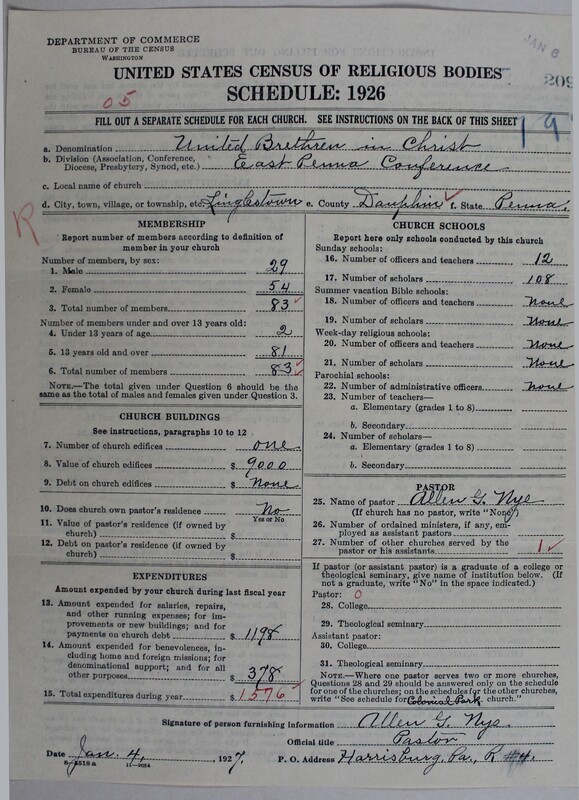 DEPARTMENT OF COMMERCE
BUREAU OF THE CENSUS
WASHINGTON
JAN 6
UNITED STATES CENSUS OF RELIGIOUS BODIES
209
SCHEDULE: 1926
05
FILL OUT A SEPARATE SCHEDULE FOR EACH CHURCH. SEE INSTRUCTIONS ON THE BACK OF THIS SHEET
19
a. Denomination United Brethren in Christ
b. Division (Association, Conference, Diocese, Presbytery, Synod, etc.) East Penna Conference
c. Local name of church
d. City, town, village, or township, etc. Linglestown e. County Dauphin f. State Penna.
R
MEMBERSHIP
Report number of members according to definition of
member in your church
Number of members, by sex:
1. Male 29
2. Female 54
3. Total number of members 83
Number of members under and over 13 years old:
4. Under 13 years of age 2
5. 13 years old and over 81
6. Total number of members 83
NOTE.—The total given under Question 6 should be
same as the total of males and females given under Question 3.
CHURCH BUILDINGS
See instructions, paragraphs 10 to 12
7. Number of church edifices one
8. Value of church edifices $ 9000
9. Debt on church edifices $ None
10. Does church own pastor's residence No
Yes or No
11. Value of pastor's residence (if owned by
church) $
12. Debt on pastor's residence (if owned by
church) $
EXPENDITURES
Amount expended by your church during last fiscal year
13. Amount expended for salaries, repairs,
and other running expenses; for im-
provements or new buildings; and for
payments on church debt $ 1198
14. Amount expended for benevolences,
including home and foreign missions; for
denominational support; and for all
other purposes $ 378
15. Total expenditures during year $ 1576
CHURCH SCHOOLS
Report here only schools conducted by this church
Sunday schools:
16. Number of officers and teachers 12
17. Number of scholars 108
Summer vacation Bible schools:
18. Number of officers and teachers None
19. Number of scholars None
Week-day religious schools:
20. Number of officers and teachers None
21. Number of scholars None
Parochial schools:
22. Number of administrative officers None
23. Number of teachers—
a. Elementary (grades 1 to 8)
b. Secondary
24. Number of scholars—
a. Elementary (grades 1 to 8)
b. Secondary
PASTOR
25. Name of pastor Allen G. Nye
(If church has no pastor, write "None")
26. Number of ordained ministers, if any, em-
ployed as assistant pastors
27. Number of other churches served by the
pastor or his assistants 1
If pastor (or assistant pastor) is a graduate of a college or
theological seminary, give name of institution below. (If
not a graduate, write "No" in the space indicated.)
Pastor: 0
28. College
29. Theological seminary
Assistant pastor:
30. College
31. Theological seminary
NOTE.—Where one pastor serves two or more churches,
Questions 28 and 29 should be answered only on the schedule
for one of the churches; on the schedules for the other churches,
write "See schedule for Colonial Park church."
Signature of person furnishing information Allen G. Nye.
Official title Pastor
Date Jan. 4, 1927. P. O. Address Harrisburg, Pa., R #4.
8-2518 a 11-9034